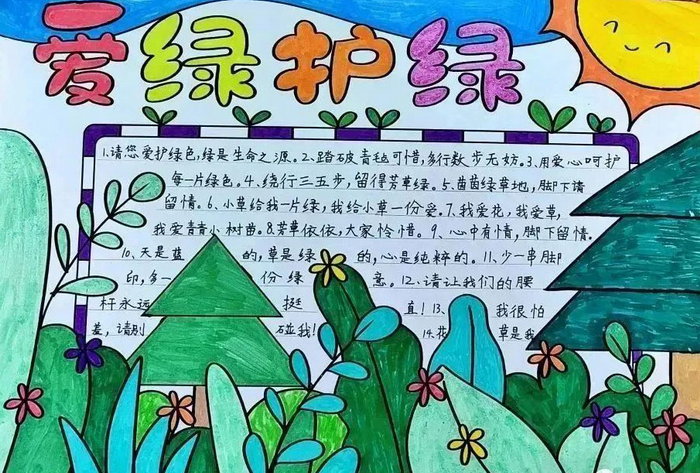 爱绿护绿
1.请您爱护绿色,绿是生命之源。2.踏破青毡可惜,多行数步无妨。3.用爱心呵护
每一片绿色。4.绕行三五步,留得芳草绿。5.茵茵绿草地,脚下请
留情。6.小草给我一片绿,我给小草一份爱。7.我爱花,我爱草,
我爱青青小树曲。8.芳草依依,大家怜惜。9.心中有情,脚下留情。
10.天是蓝的,草是绿的,心是纯粹的。11.少一串脚
印,多一份绿意。12.请让我们的腰
杆永远挺直!13.我很怕
羞,请别碰我!14.花草是我